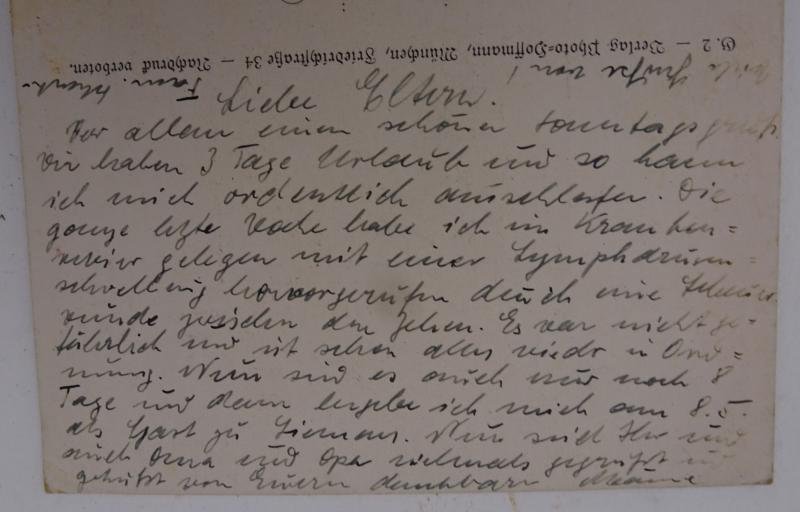 G. 2 — Verlag Photo-Hoffmann, München, Friedrichstraße 34 — Nachdruck verboten.
Grüße von Fam.
Liebe Eltern.
Vor allem einen schönen Sonntagsgruß.
Wir haben 3 Tage Urlaub und so kann
ich mich ordentlich ausschlafen. Die
ganze letzte Woche habe ich im Kranken=
revier gelegen mit einer Lymphdrüsen=
schwellung hervorgerufen durch eine
wunde zwischen den Zehen. Es war nicht ge-
fährlich und ist schon alles wieder in Ord=
nung. Nun sind es auch nur noch 8
Tage und dann begebe ich mich am 8.5.
als Gast zu Siemens. Nun seid Ihr und
auch Oma und Opa vielmals gegrüßt und
geküßt von Euern dankbaren